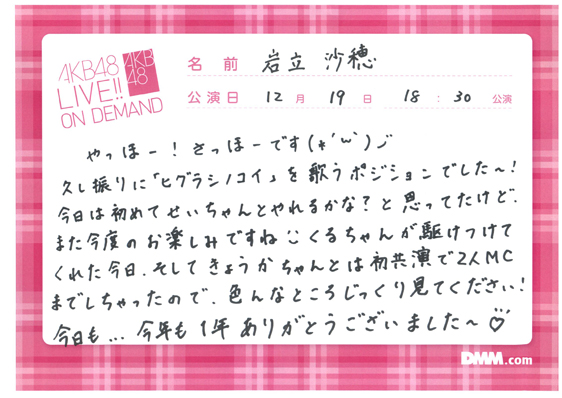 AKB48
LIVE!!
ON DEMAND
AKB
48
名前 岩立 沙穂
公演日 12月 19日 18:30 公演
やっほー!さっほーです(*'ω')ノ
久し振りに「ヒグラシノコイ」を歌うポジションでした〜!
今日は初めてせいちゃんとやれるかな?と思ってたけど、
また今度のお楽しみですねくるちゃんが駆けつけて
くれた今日、そしてきょうかちゃんとは初共演で2人MC
までしちゃったので、色んなところじっくり見てください!
今日も...今年も1年ありがとうございました〜♡
DMM.com